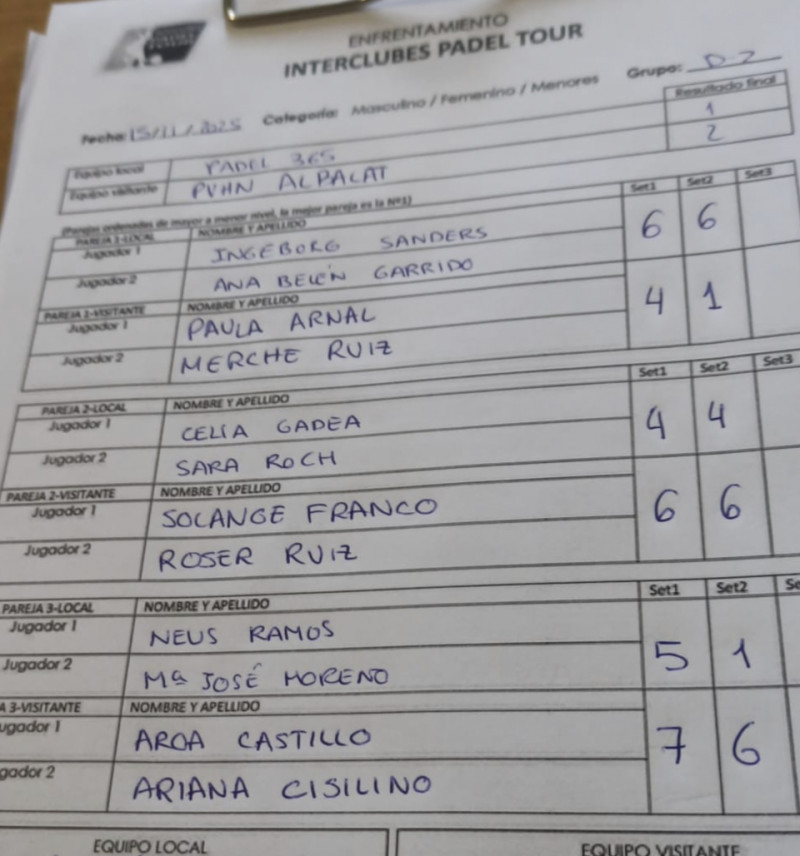 ENFRENTAMIENTO
INTERCLUBES PADEL TOUR
Grupo: D-2
Fecha: 15/11/2025 Categoría: Masculino / Femenino / Menores
Resultado final
Equipo local PADEL 365 1
Equipo visitante PVHN ALPALAT 2
(Parejas ordenadas de mayor a menor nivel, la mejor pareja es la Nº1)
PAREJA 1-LOCAL NOMBRE Y APELLIDO Set1 Set2 Set3
Jugador 1 INGEBORG SANDERS 6 6
Jugador 2 ANA BELÉN GARRIDO
PAREJA 1-VISITANTE NOMBRE Y APELLIDO
Jugador 1 PAULA ARNAL 4 1
Jugador 2 MERCHE RUIZ
PAREJA 2-LOCAL NOMBRE Y APELLIDO Set1 Set2 Set3
Jugador 1 CELIA GADEA 4 4
Jugador 2 SARA ROCH
PAREJA 2-VISITANTE NOMBRE Y APELLIDO
Jugador 1 SOLANGE FRANCO 6 6
Jugador 2 ROSER RUIZ
PAREJA 3-LOCAL NOMBRE Y APELLIDO Set1 Set2 Se
Jugador 1 NEUS RAMOS 5 1
Jugador 2 Mª JOSÉ MORENO
A 3-VISITANTE NOMBRE Y APELLIDO
ugador 1 AROA CASTILLO 7 6
gador 2 ARIANA CISILINO
EQUIPO LOCAL EQUIPO VISITANTE